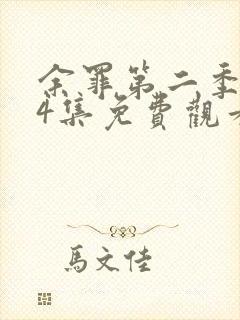 余罪第二季
4集免費觀看
馬文佳